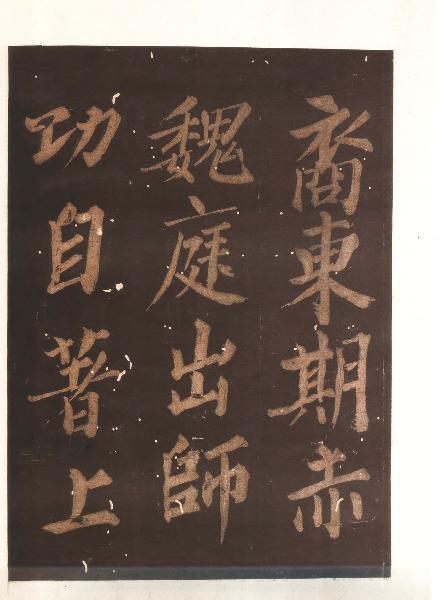 裔東期赤
魏庭出師
功自著上